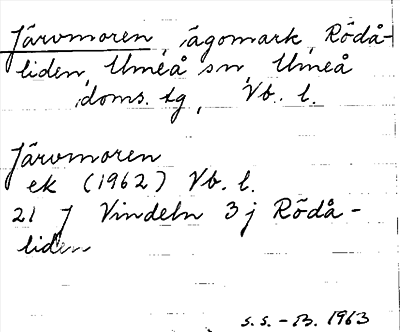 Järvmoren, ägomark, Rödå-
liden, Umeå sn, Umeå
doms. tg, Vb. l.
Järvmoren
ek (1962) Vb. l.
21 J Vindeln 3 j Rödå-
liden
S.S. - B. 1963